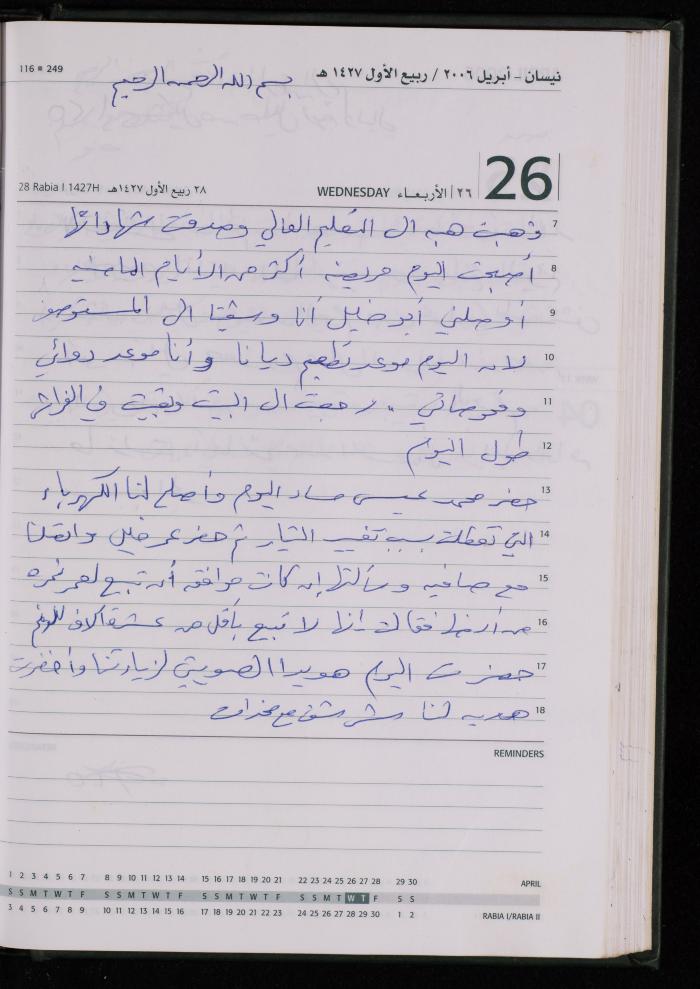 116 ■ 249
نيسان - أبريل ٢٠٠٦ / ربيع الأول ١٤٢٧ هـ
بسم الله الرحمن الرحيم
26
28 Rabia I 1427H ٢٨ ربيع الأول ١٤٢٧هـ
WEDNESDAY ٢٦ الأربعاء
7 ذهبت هبه الى التعليم العالي وصدقت شهاداتها
8 أصبحت اليوم مريضه أكثر من الأيام الماضيه
9 أوصلني أبو خليل أنا وسقيتا الى المستوصف
10 لانه اليوم موعد تطعيم ديانا وأنا موعد دوائي
11 وفحوصاتي . رجعت الى البيت وبقيت في الفراش
12 طول اليوم
13 حضر محمد عيسى مساء اليوم وأصلح لنا الكهرباء
14 التي تعطلت بسبب تغيير التيار ثم حضر عمر خليل واتصلنا
15 مع صافيه وسألتها إن كانت موافقه أن تبيع لعمر نمره
16 من أرضها فقالت انا لا نبيع بأقل من عشرة آلاف للدونم
17 حضرت اليوم هويدا الصويتي لزيارتنا وأحضرت
18 هديه لنا شرشف مع مخدات
REMINDERS
1 2 3 4 5 6 7 8 9 10 11 12 13 14 15 16 17 18 19 20 21 22 23 24 25 26 27 28 29 30 APRIL
S S M T W T F S S M T W T F S S M T W T F S S M T W T F S S
3 4 5 6 7 8 9 10 11 12 13 14 15 16 17 18 19 20 21 22 23 24 25 26 27 28 29 30 1 2 RABIA I/RABIA II